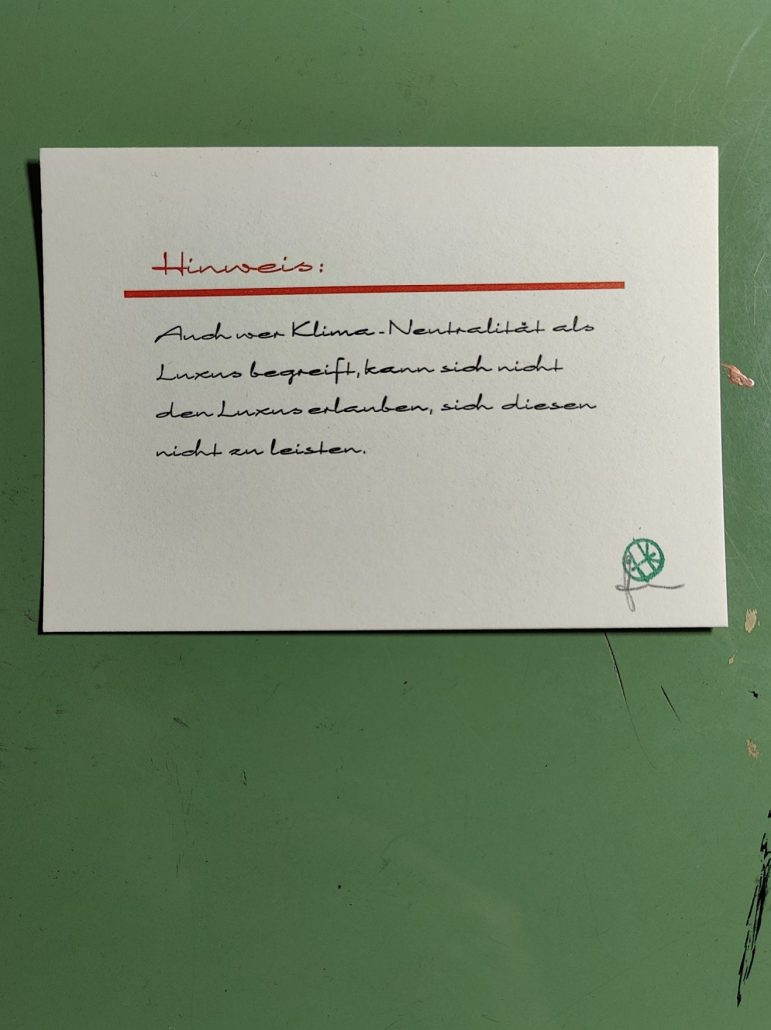 Hinweis:
Auch wer Klima-Neutralität als
Luxus begreift, kann sich nicht
den Luxus erlauben, sich diesen
nicht zu leisten.